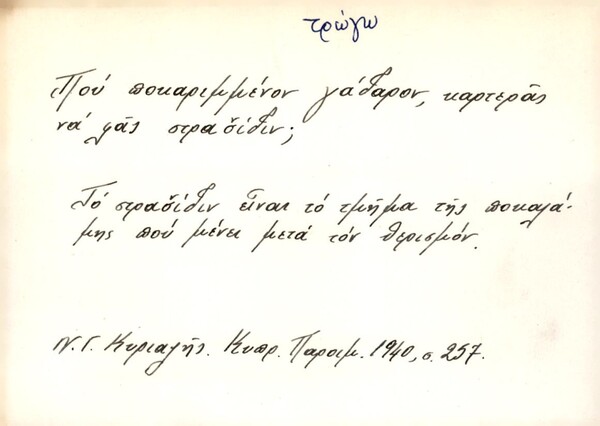 τρώγω
Πού ποκαριμμένον γάδαρον, καρτερᾶς
νά φᾶς στρασ̌ίδιν;
Τό στρασ̌ίδιν εἶναι τό τμῆμα τῆς ποκαλά-
μης πού μένει μετά τόν θερισμόν.
Ν. Γ. Κυριαζῆς. Κυπρ. Παροιμ. 1940, σ. 257.